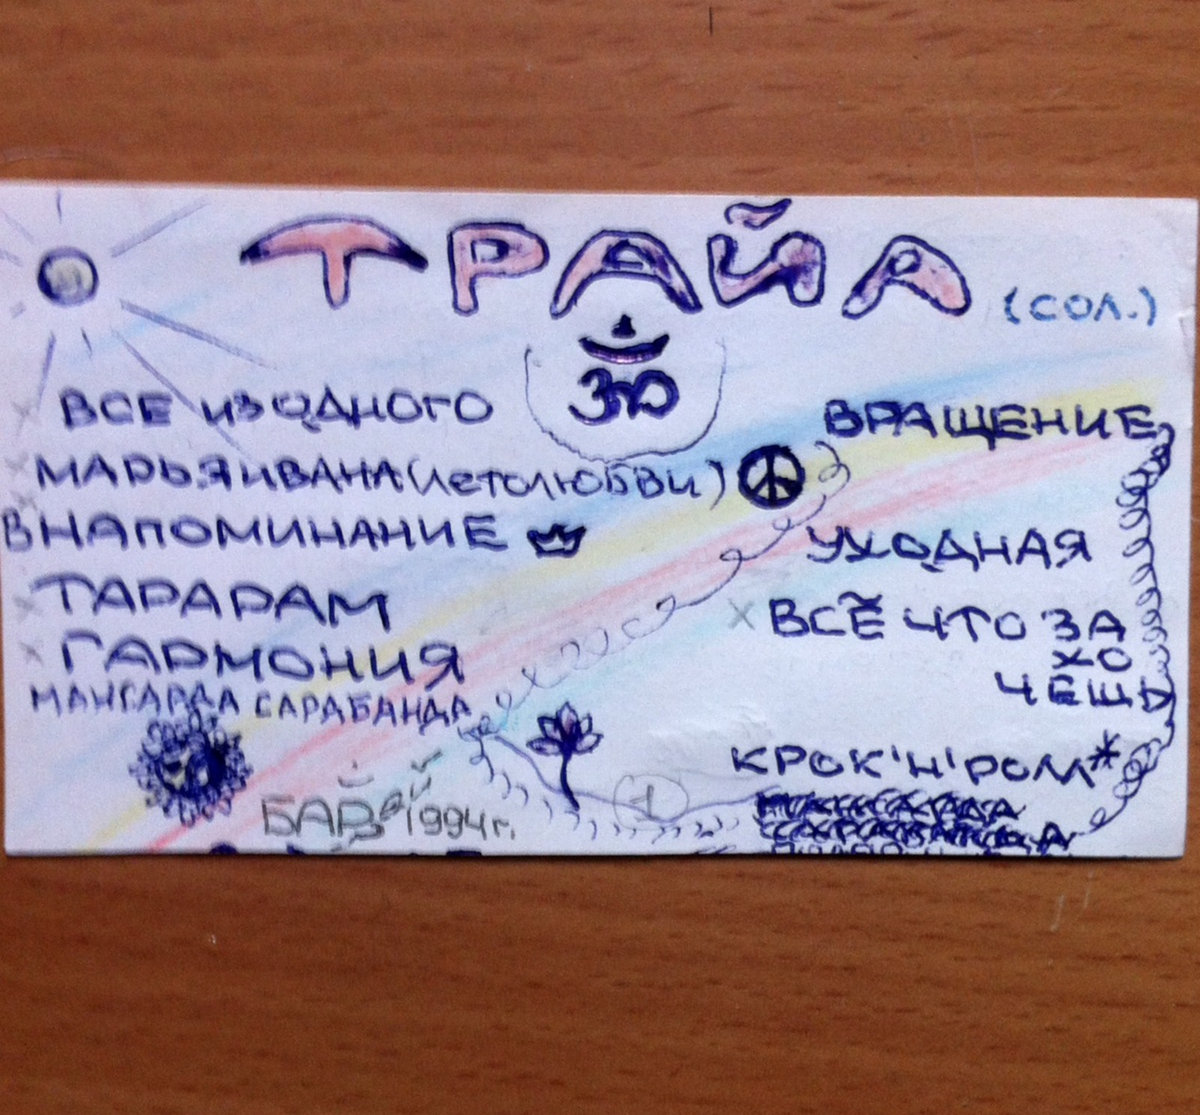 ТРАЙА
(СОЛ.)
ВСЕ ИЗ ОДНОГО
МАРЬЯИВАНА (ЛЕТОЛЮБВИ)
ВНАПОМИНАНИЕ
ТАРАРАМ
ГАРМОНИЯ
МАНГАРДА САРАБАНДА
1994 г.
1
ВРАЩЕНИЕ
УХОДНАЯ
ВСЁ ЧТО ЗА
ХО
ЧЕШЬ
КРОК'Н'РОЛЛ*